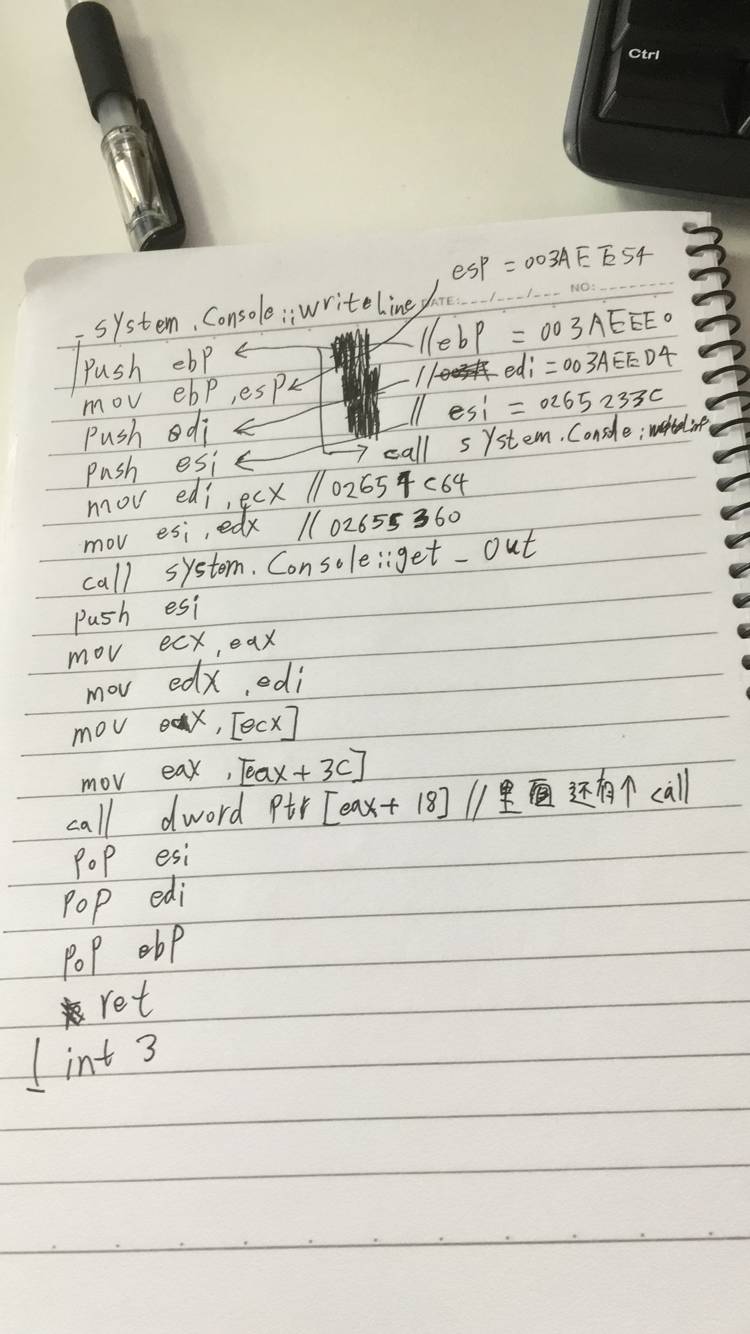 Ctrl
esp = 003AEE54
System.Console::WriteLine DATE:---/---/--- NO:--------
push ebp //ebp = 003AEEE0
mov ebp,esp // edi = 003AEED4
push edi // esi = 0265233C
push esi call system.Console::writeline
mov edi,ecx //02654C64
mov esi,edx //02655360
call system.Console::get_Out
push esi
mov ecx,eax
mov edx,edi
mov eax,[ecx]
mov eax,[eax+3C]
call dword ptr [eax+18] //里面还有个 call
pop esi
pop edi
pop ebp
ret
int 3